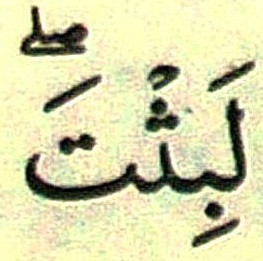 لَبِثْتَۖ